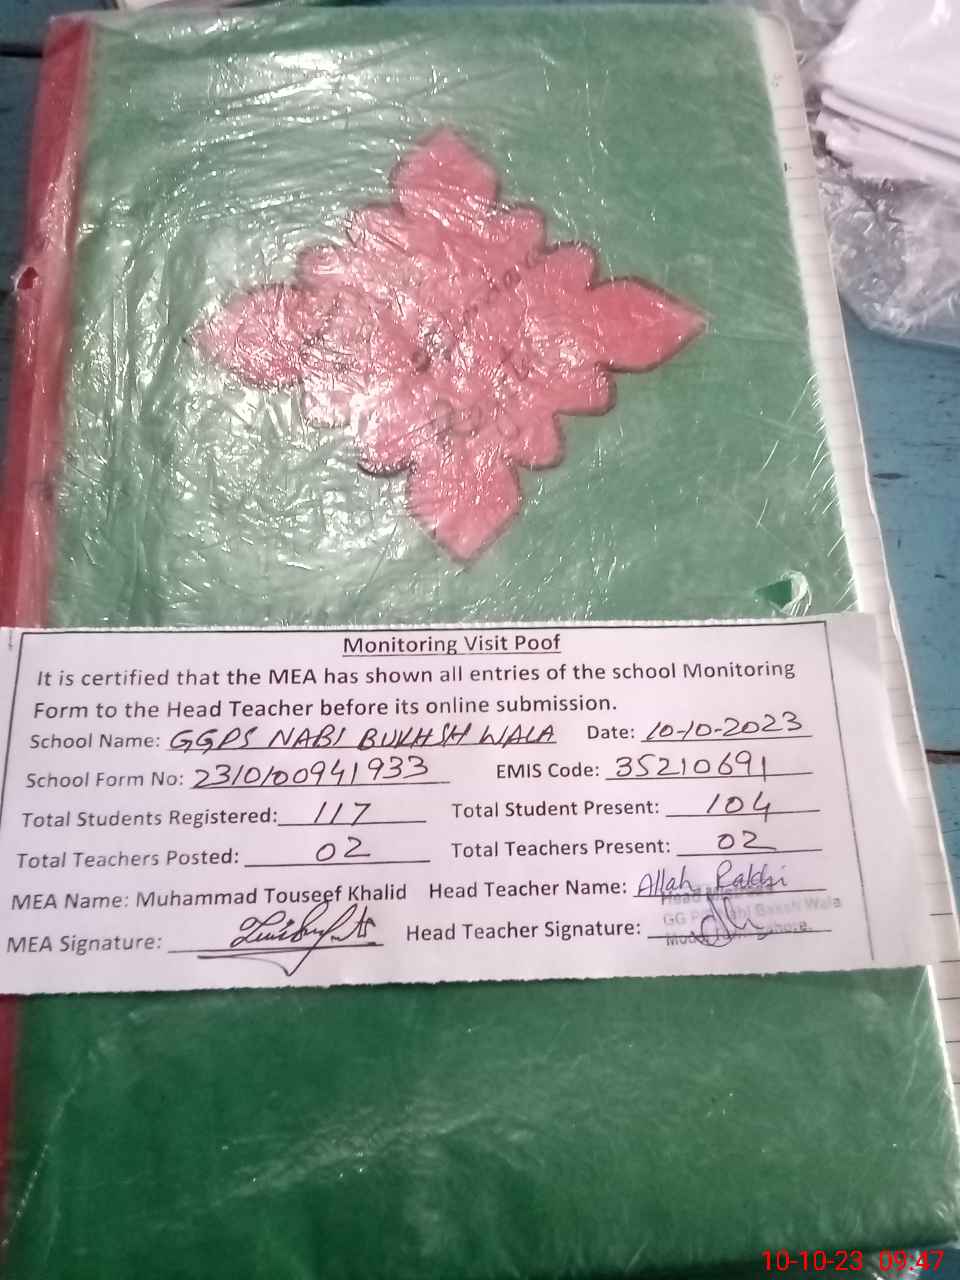 Monitoring Visit Poof
It is certified that the MEA has shown all entries of the school Monitoring
Form to the Head Teacher before its online submission.
School Name: GGPS NABI BUKHSH WALA Date: 10-10-2023
School Form No: 2310100941933 EMIS Code: 35210691
Total Students Registered: 117 Total Student Present: 104
Total Teachers Posted: 02 Total Teachers Present: 02
MEA Name: Muhammad Touseef Khalid Head Teacher Name: Allah Rakhi
MEA Signature: Head Teacher Signature:
Head
GG Nabi Baksh Wala
10-10-23 09:47